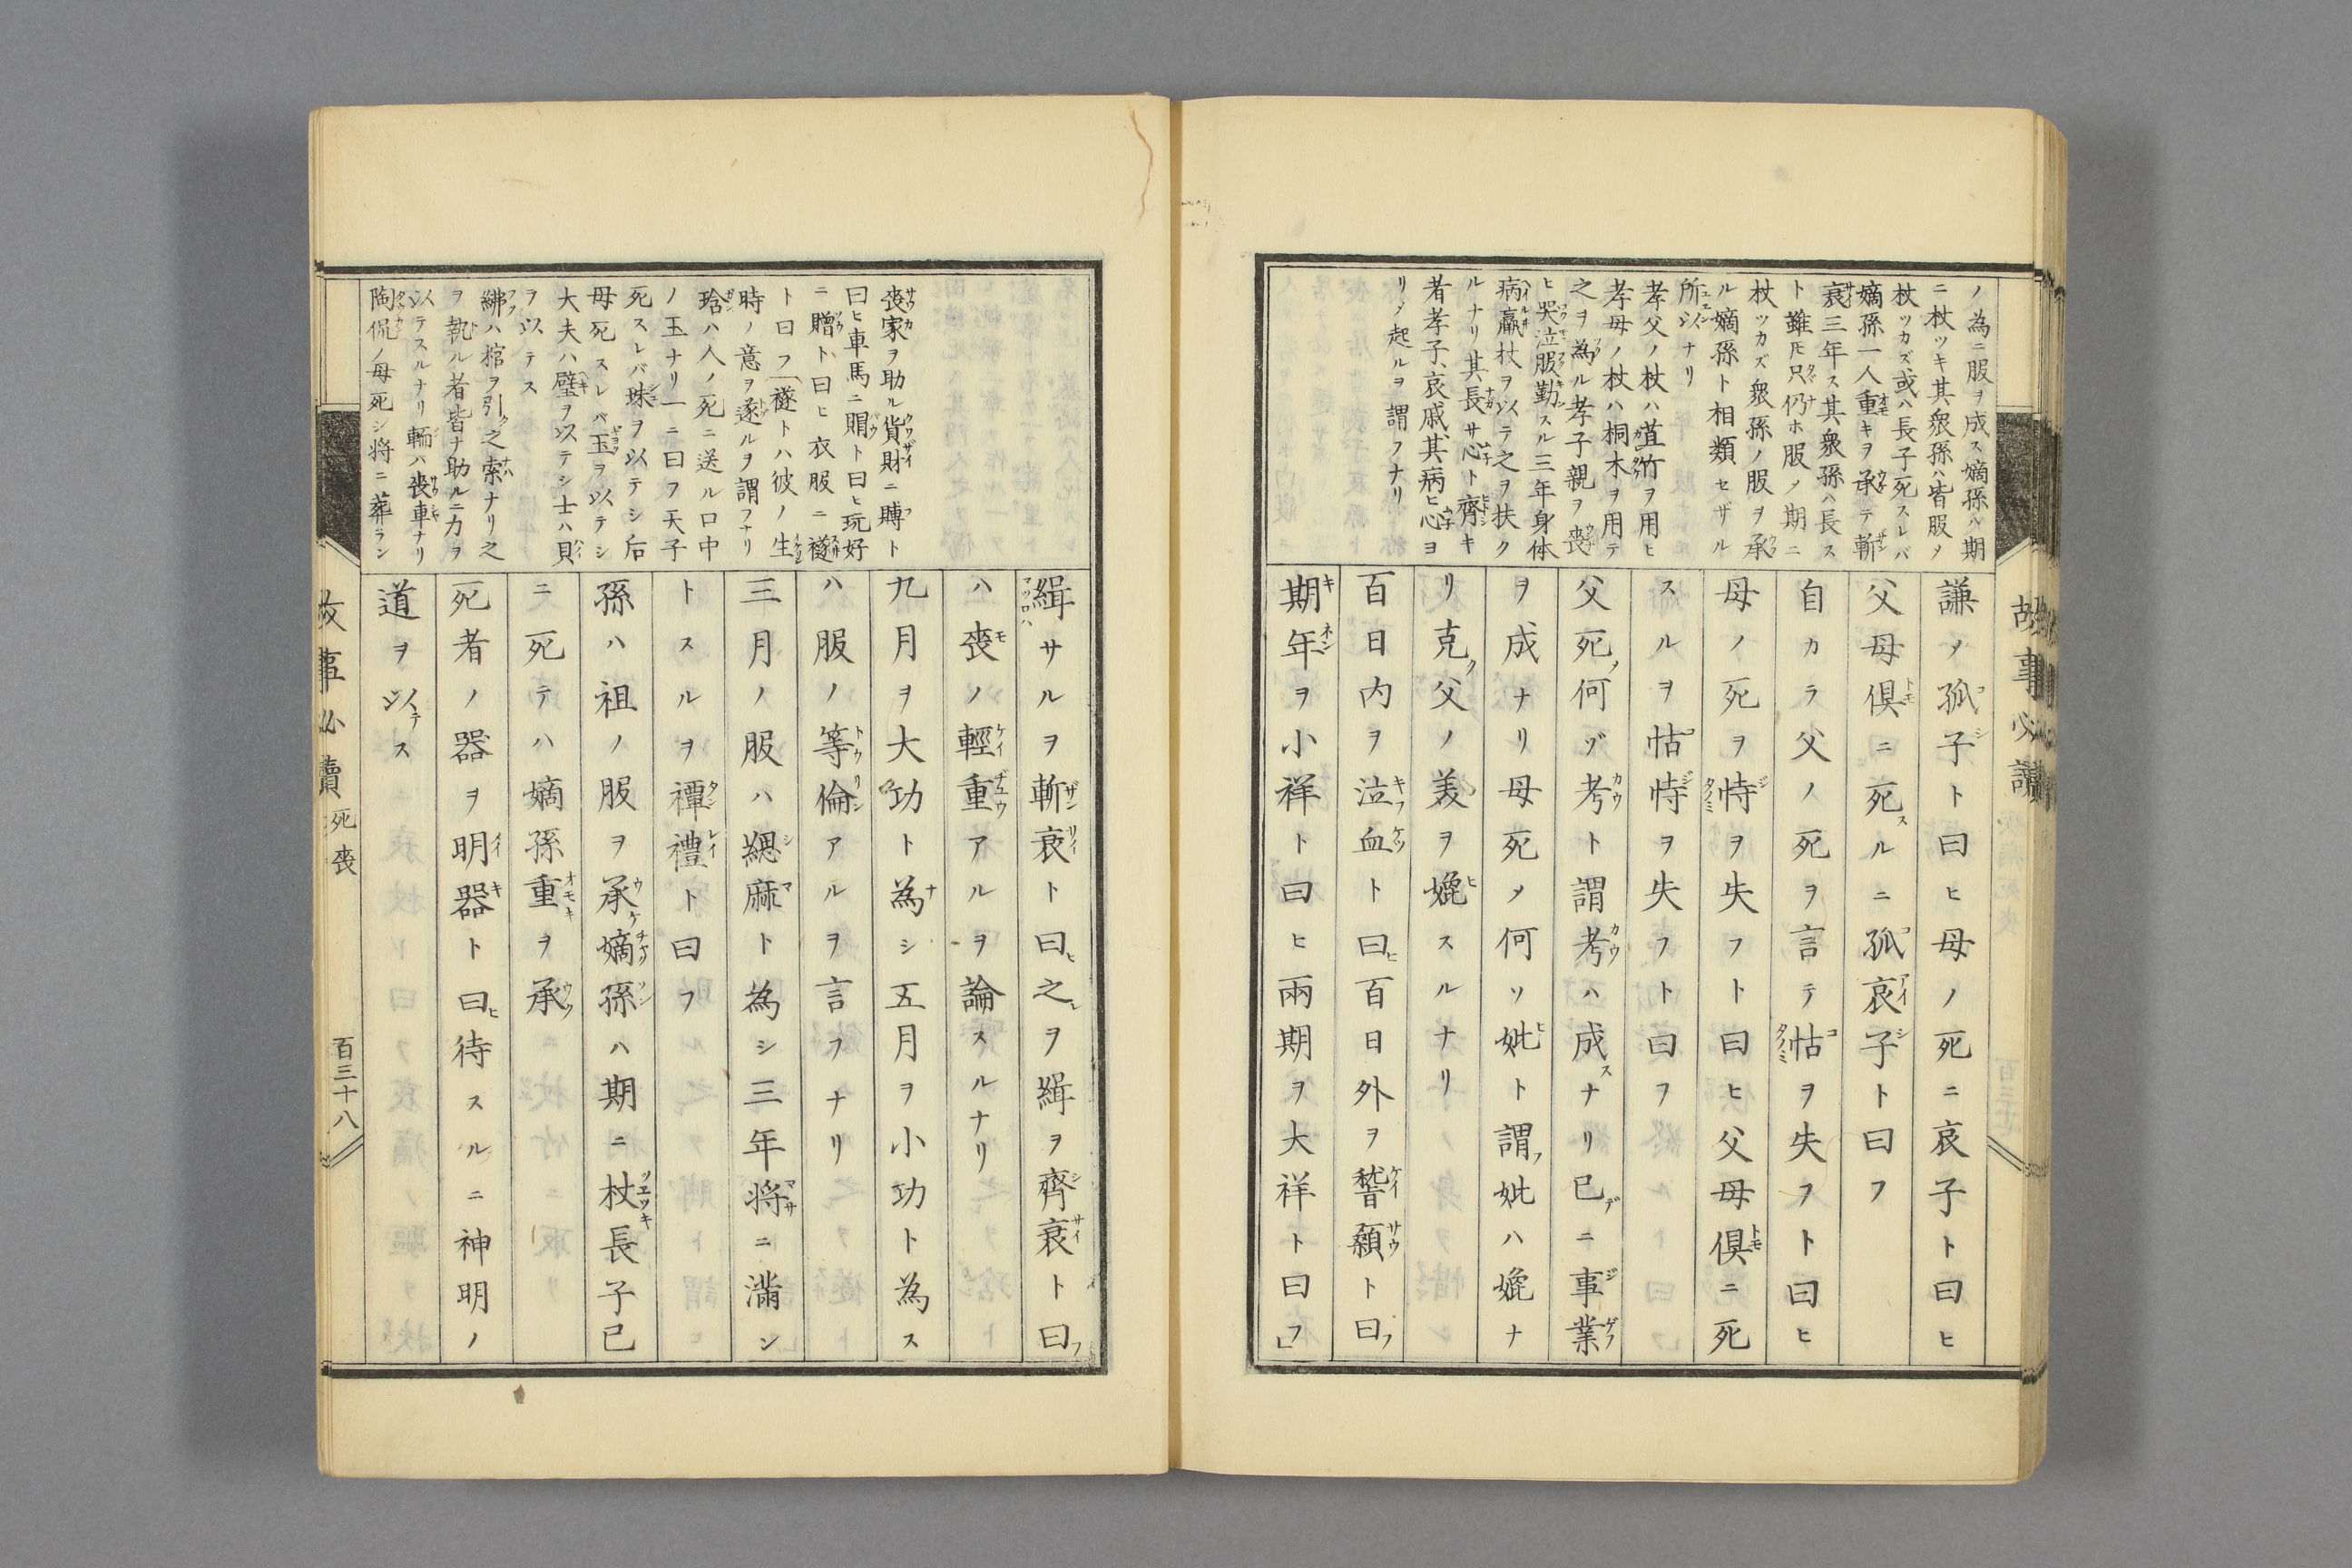 故事必讀
ノ為ニ服ヲ成ス嫡孫ハ期
ニ杖ツキ其衆孫ハ皆服ノ
杖ツカズ或ハ長子死スレバ
嫡孫一人重キヲ承テ斬
衰三年ス其衆孫ハ長ス
ト雖𪜈只仍ホ服ノ期ニ
杖ツカズ衆孫ノ服ヲ承
ル嫡孫ト相類セザル
所以ナリ
孝父ノ杖ハ苴竹ヲ用ヒ
孝母ノ杖ハ桐木ヲ用テ
之ヲ為ル孝子親ヲ喪
ヒ哭泣服勤スル三年身体
病羸杖ヲ以テ之ヲ扶ク
ルナリ其長サ心ト齊キ
者孝子、哀戚其病ヒ心ヨ
リゾ起ルヲ謂フナリ
謙ノ孤子ト曰ヒ母ノ死ニ哀子ト曰ヒ
父母倶ニ死スルニ孤哀子ト曰フ
自カラ父ノ死ヲ言テ怙ヲ失フト曰ヒ
母ノ死ヲ恃ヲ失フト曰ヒ父母倶ニ死
スルヲ怙恃ヲ失フト曰ヲ
父死ノ何ゾ考ト謂考ハ成スナリ已デニ事業
ヲ成ナリ母死ノ何ソ妣ト謂フ妣ハ媲ナ
リ克ク父ノ美ヲ媲スルナリ
百日内ヲ泣血ト曰ヒ百日外ヲ稽顙ト曰フ
期年ヲ小祥ト曰ヒ兩期ヲ大祥ト曰フ」
喪家ヲ助ル貨財ニ賻ト
曰ヒ車馬ニ賵ト曰ヒ玩好
ニ贈ト曰ヒ衣服ニ襚
ト曰フ襚トハ彼ノ生
時ノ意ヲ遂ルヲ謂フナリ
琀ハ人ノ死ニ送ル口中
ノ玉ナリ一ニ曰フ天子
死スレバ珠ヲ以テシ后
母死スレバ玉ヲ以テシ
大夫ハ璧ヲ以テシ士ハ貝
ヲ以テス
紼ハ棺ヲ引ク之索ナリ之
ヲ執ル者皆ナ助ルニ力ヲ
以テスルナリ輀ハ喪車ナリ
陶侃ノ母死シ将ニ葬ラン
緝サルヲ斬衰ト曰ヒ之ヲ緝ヲ齊衰ト曰フ
ハ喪ノ輕重アルヲ論スルナリ
九月ヲ大功ト為シ五月ヲ小功ト為ス
ハ服ノ等倫アルヲ言フナリ
三月ノ服ハ緦麻ト為シ三年将ニ滿ン
トスルヲ禫禮ト曰フ
孫ハ祖ノ服ヲ承ケ嫡孫ハ期ニ杖長子已
ニ死テハ嫡孫重キヲ承
死者ノ器ヲ明器ト曰ヒ待スルニ神明ノ
道ヲ以テス
故事必讀
死喪
百三十八